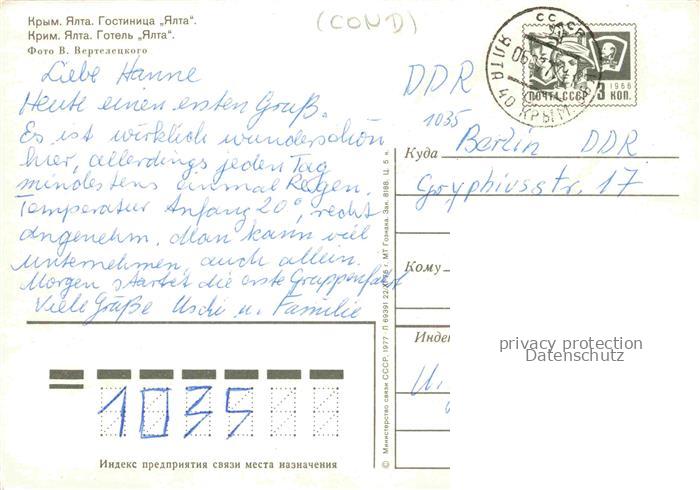 Крым. Ялта. Гостиница „Ялта“.
Крим. Ялта. Готель „Ялта“.
Фото В. Вертелецкого
(COND)
Liebe Hanne
Heute einen ersten Gruß.
Es ist wirklich wunderschön
hier, allerdings jeden Tag
mindestens einmal Regen.
Temperatur Anfang 20°, recht
angenehm. Man kann viel
unternehmen, auch allein.
Morgen startet die erste Gruppenfahrt
Viele Grüße Uschi u. Familie
1035
Индекс предприятия связи места назначения
© Министерство связи СССР, 1977
МТ Гознака. Зак. 8188. Ц. 5 к.
СССР
ЯЛТА 40 КРЫМ
ПОЧТА СССР
1966
3 КОП.
DDR
1035
Куда Berlin DDR
Gryphiusstr. 17
Кому
Индек
privacy protection
Datenschutz